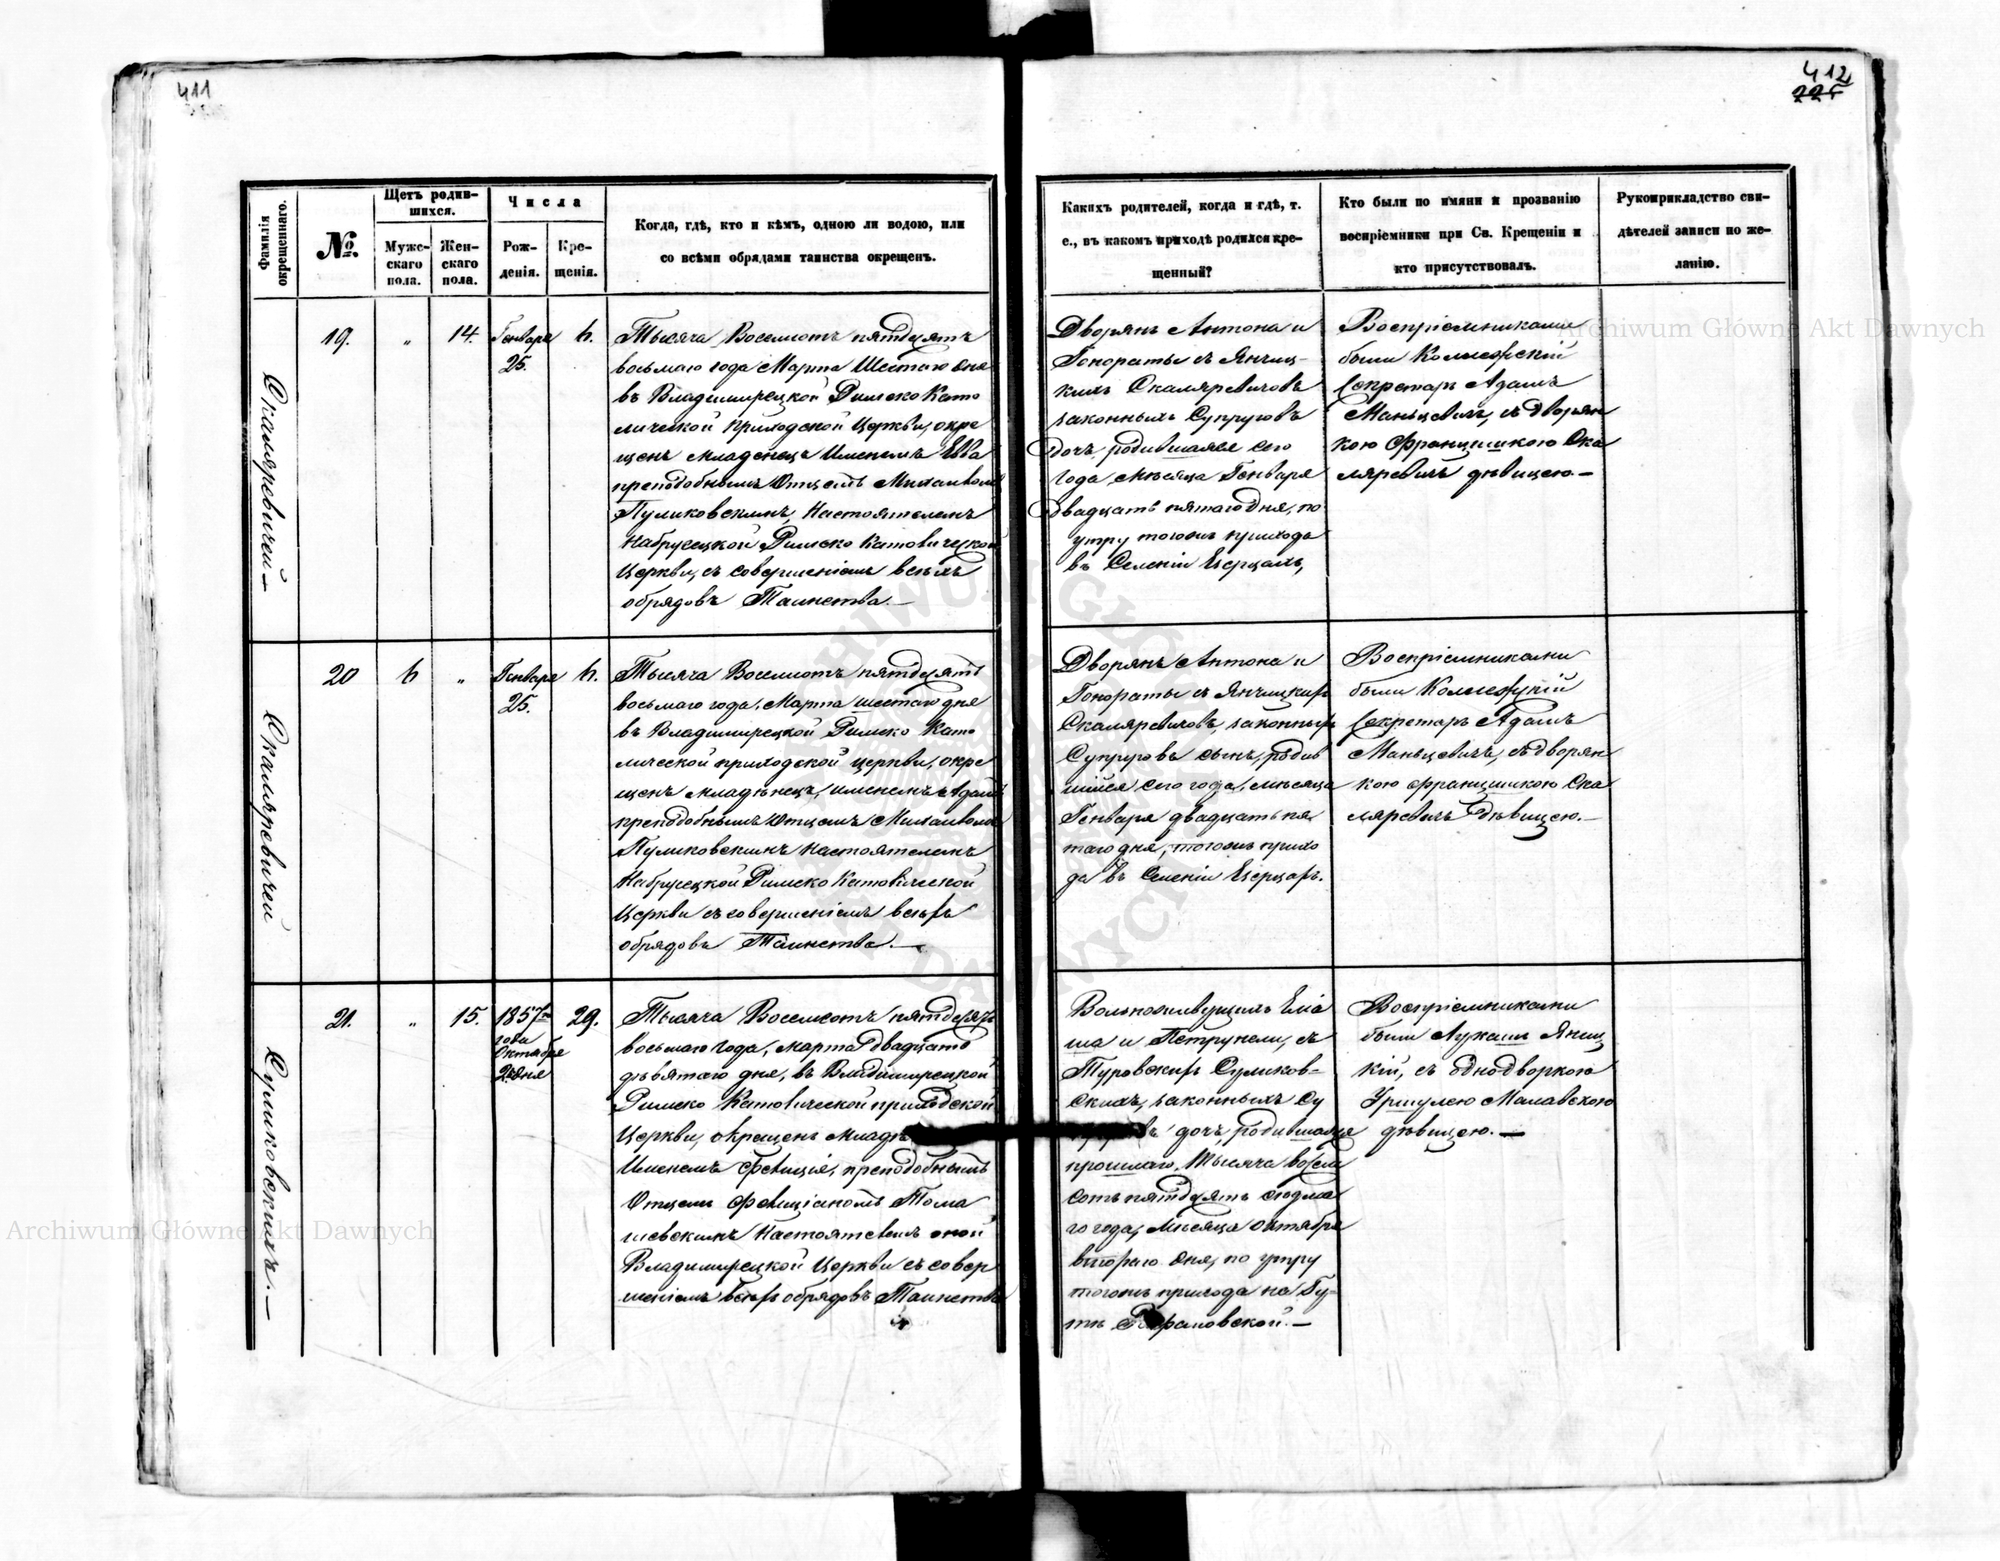 411
412
225
Фамилія окрещеннаго.
№.
Щетъ родив-
шихся.
Муже-
скаго
пола.
Жен-
скаго
пола.
Числа
Рож-
денія.
Кре-
щенія.
Когда, гдѣ, кто и кѣмъ, одною ли водою, или
со всѣми обрядами таинства окрещенъ.
Какихъ родителей, когда и гдѣ, т.
е., въ какомъ приходѣ родился кре-
щенный?
Кто были по имяни и прозванію
воспріемники при Св. Крещеніи и
кто присутствовалъ.
Рукоприкладство сви-
дѣтелей записи по же-
ланію.
Скаляревичей
19.
"
14.
Генваря
25.
6.
Тысяча Восемсотъ пятдесятъ
восьмаго года Марта Шестаго дня
въ Владимирецкой Римско Като
лической приходской Церкви, окре
щенъ младенецъ Именемъ Евва
преподобнымъ Отцемъ Михаиломъ
Пуликовскимъ, Настоятелемъ
Римско Католической
Церкви, съ совершеніемъ всѣхъ
обрядовъ Таинства.—
Дворянъ Антона и
Гонораты съ Янчиц-
кихъ Скаляревичовъ
законныхъ Супруговъ
дочь, родившаяся сего
года, Мѣсяца Генваря
двадцать пятаго дня, по
утру тогожъ прихода
въ Селеніи
Воспріемниками
были Коллежскій
Секретарь Адамъ
Маньцевичъ, съ дворян
кою Францишкою Ска
ляревичъ дѣвицею.—
Скаляревичей
20
6
"
Генваря
25.
6.
Тысяча Восемсотъ пятдесятъ
восьмаго года, Марта шестаго дня
въ Владимирецкой Римско Като
лической приходской церкви, окре
щенъ младенецъ, именемъ Адамъ
преподобнымъ Отцемъ Михаиломъ
Пуликовскимъ Настоятелемъ
Римско Католической
Церкви съ совершеніемъ всѣхъ
обрядовъ Таинства.—
Дворянъ Антона и
Гонораты съ Янчицкихъ
Скаляревичовъ, законныхъ
Супруговъ сынъ, родив
шійся сего года, мѣсяца
Генваря двадцать пя
таго дня, тогожъ прихо
да въ Селеніи
Воспріемниками
были Коллежскій
Секретарь Адамъ
Маньцевичъ, съ дворян
кою Францишкою Ска
ляревичъ дѣвицею.—
Суликовскихъ.—
21.
"
15.
1857го
года
Октября
2 дня
29.
Тысяча Восемсотъ пятдесятъ
восьмаго года, марта двадцать
девятаго дня, въ Владимирецкой
Римско Католической приходской
Церкви, окрещенъ
Именемъ Фелиція, преподобнымъ
Отцемъ Фелиціаномъ Тома
шевскимъ Настоятелемъ оной
Владимирецкой Церкви съ совер
шеніемъ всѣхъ обрядовъ Таинства
Вольноживущихъ Еліа
ша и Петрунели, съ
Туровскихъ Суликов-
скихъ, законныхъ Су
дочь, родившаяся
прошлаго, Тысяча восем
сотъ пятдесятъ седьма
го года, Мѣсяца Октября
втораго дня, по утру
тогожъ прихода на Гу-
тѣ
Воспріемниками
были Лукашъ Яниц
кій, съ однодворкою
Уршулею Малавскою
дѣвицею.—
Archiwum Główne Akt Dawnych
Archiwum Główne Akt Dawnych